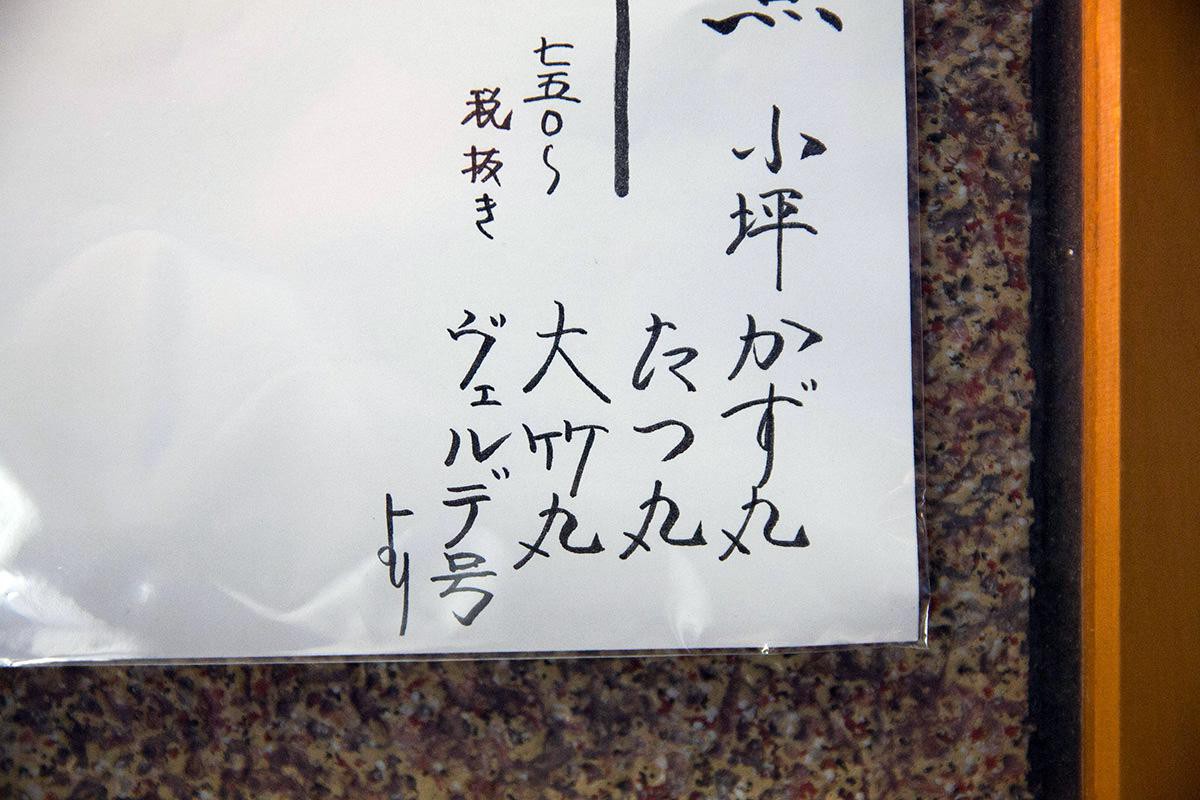 小坪 かず丸
たつ丸
七五〇〜 大竹丸
税抜き ヴェルデ号
より